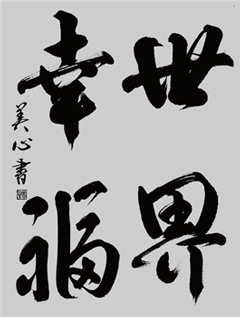 世界
幸福
美心書